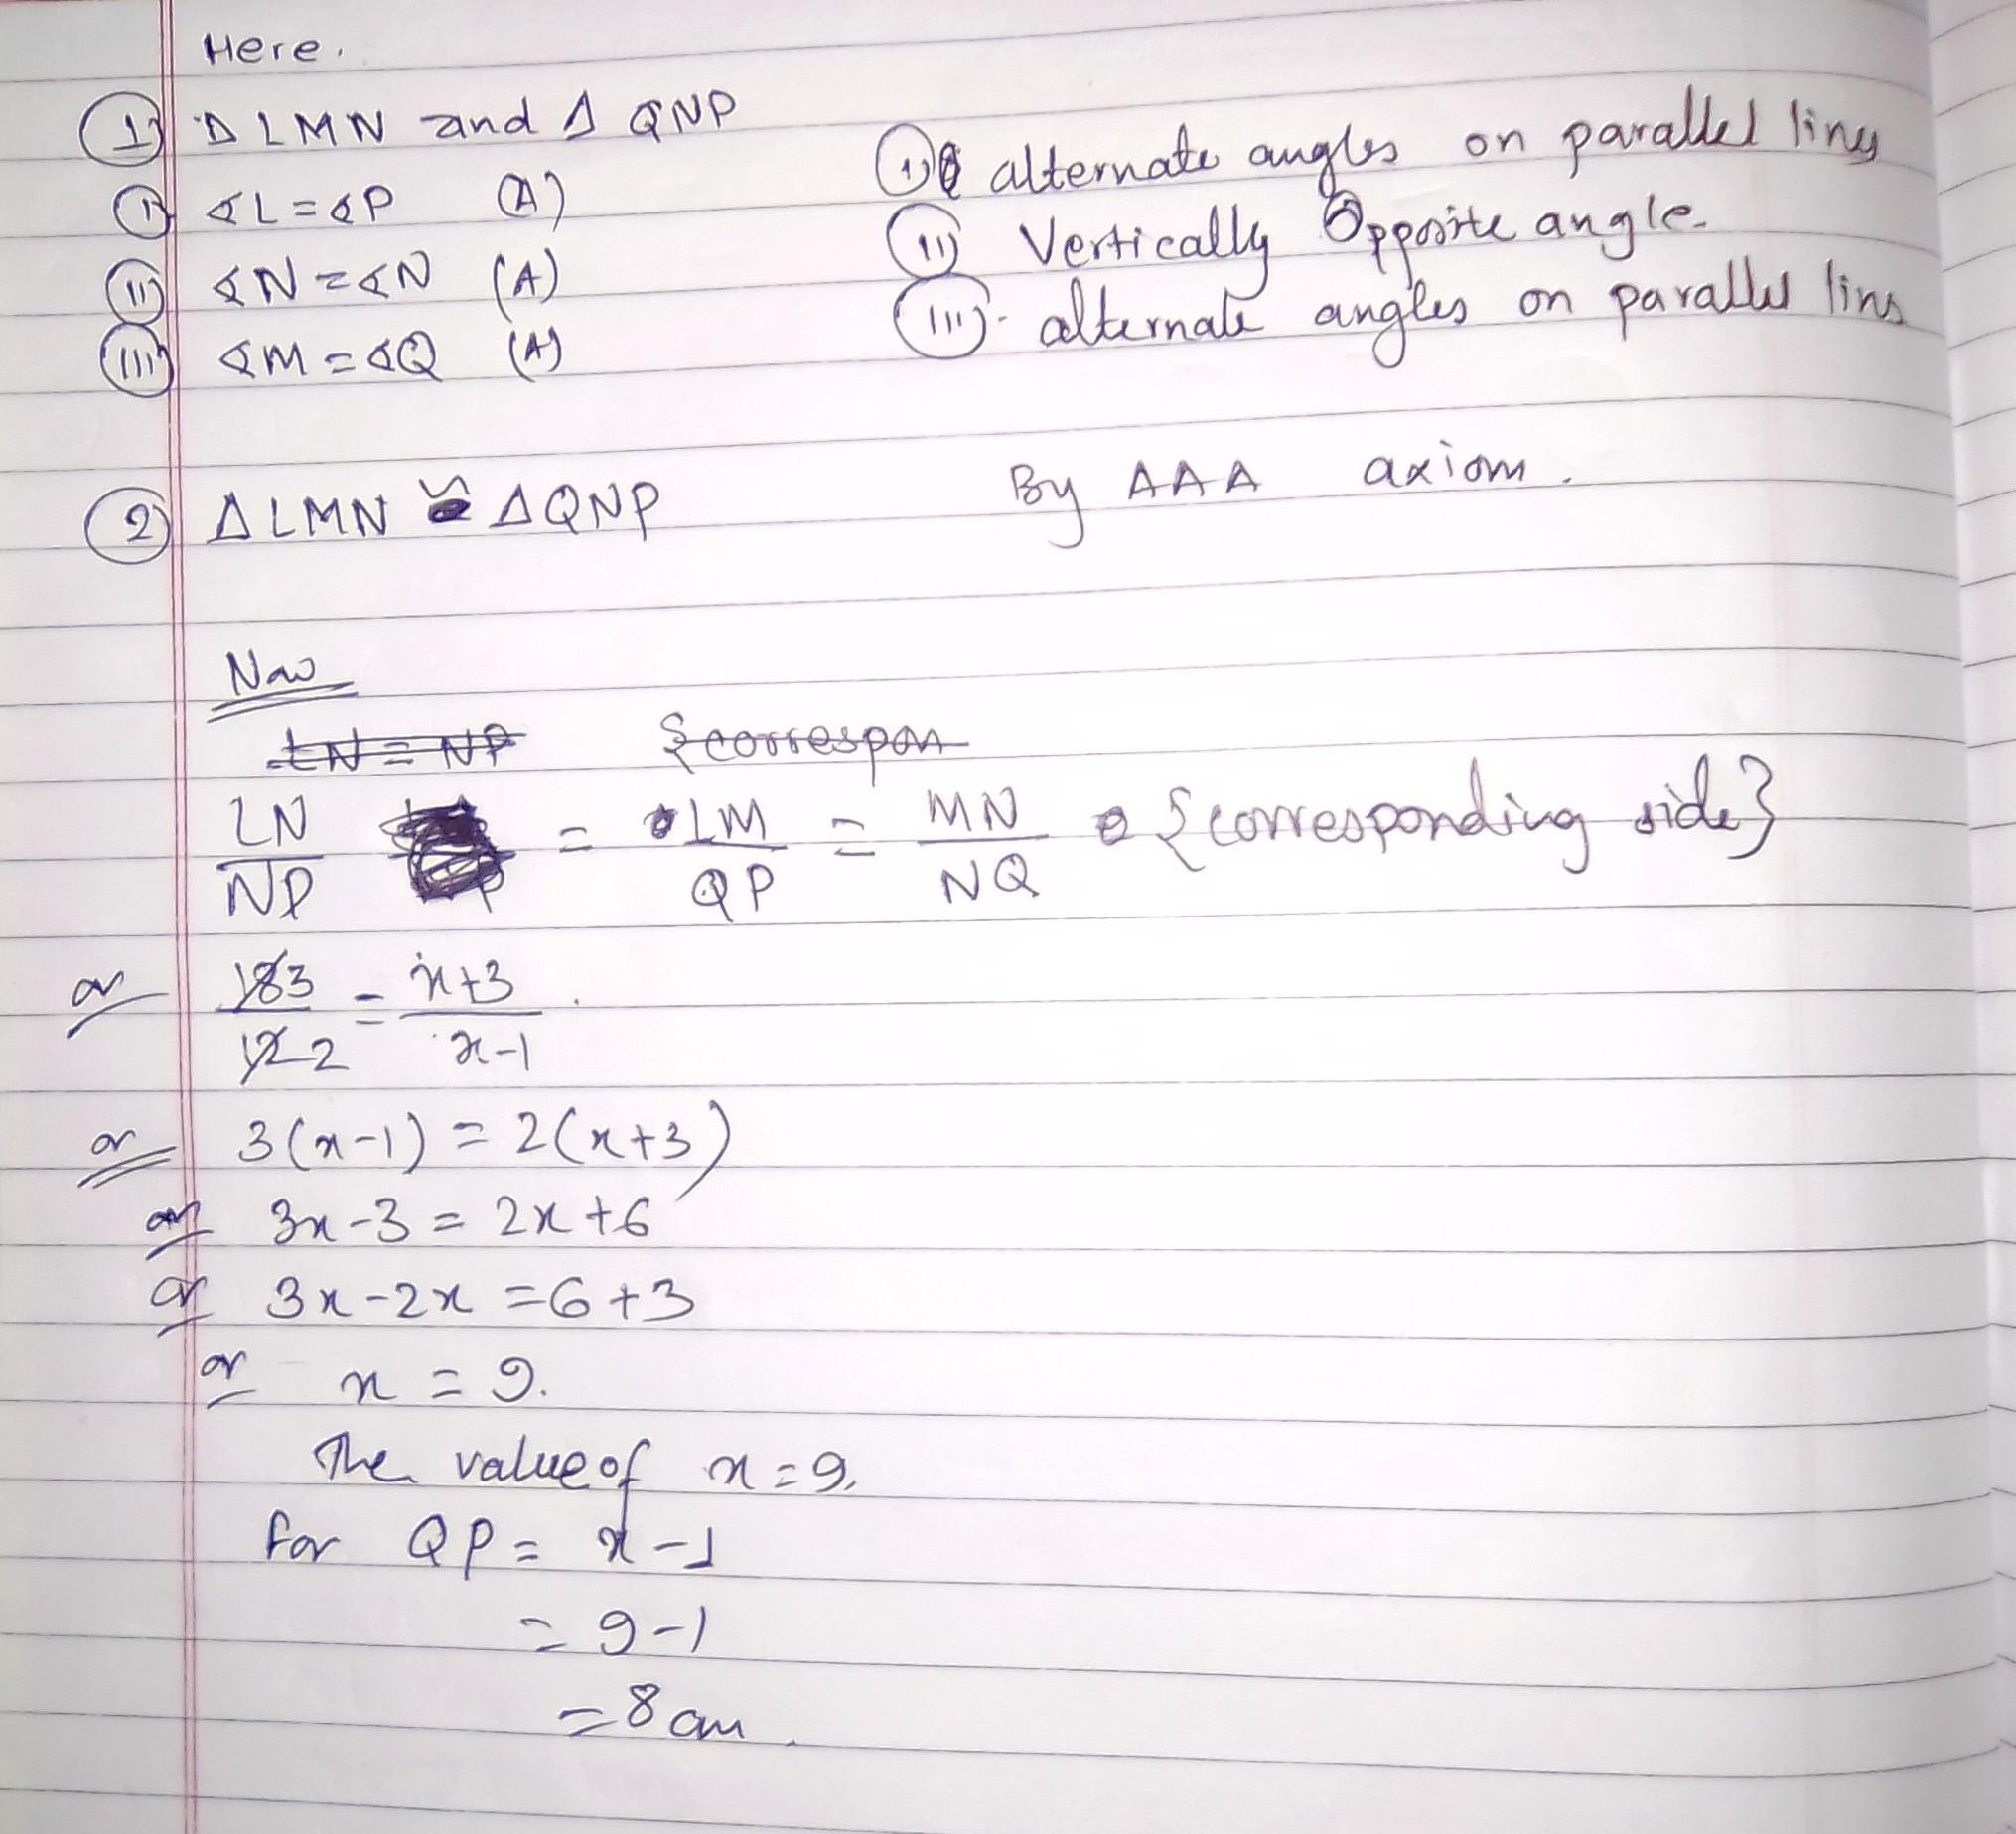 Here.
① Δ LMN and Δ QNP
① ∢L = ∢P (A) ① alternate angles on parallel lines
⑪ ∢N = ∢N (A) ⑪ Vertically Opposite angle.
(111) ∢M = ∢Q (A) (111). alternate angles on parallel lins
② Δ LMN ≌ Δ QNP By AAA axiom.
Now
LN = NP {correspon
LN/NP = LM/QP = MN/NQ {corresponding side}
or 18 3/12 2 = x+3/x-1
or 3(x-1) = 2(x+3)
or 3x-3 = 2x+6
or 3x-2x = 6+3
or x = 9.
The value of x = 9.
for QP = x-1
= 9-1
= 8 cm.